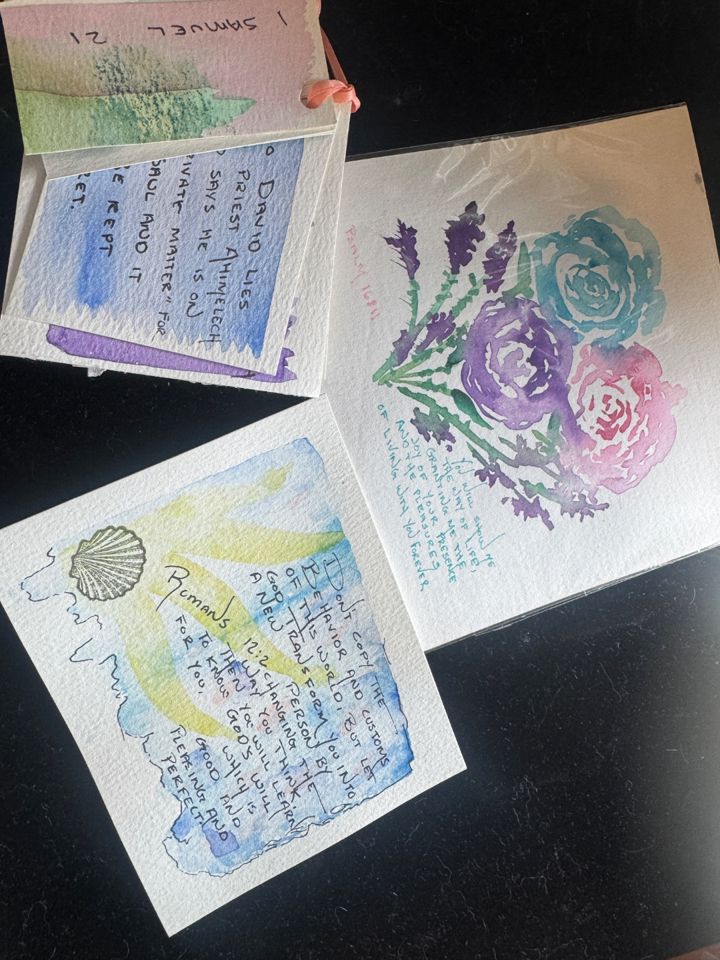 1 SAMUEL 21
DAVID LIES
PRIEST AHIMELECH
SAYS HE IS ON
MATTER" FOR
SAUL AND IT
KEPT
Psalm 16:11
YOU WILL SHOW ME
THE WAY OF LIFE,
GRANTING ME THE
JOY OF YOUR PRESENCE
AND THE PLEASURES
OF LIVING WITH YOU FOREVER
DON'T COPY THE
BEHAVIOR AND CUSTOMS
OF THIS WORLD, BUT LET
GOD TRANSFORM YOU INTO
A NEW PERSON BY
CHANGING THE
WAY YOU THINK.
THEN YOU WILL LEARN
TO KNOW GOD'S WILL
FOR YOU, WHICH IS
GOOD AND
PLEASING AND
PERFECT.
ROMANS 12:2